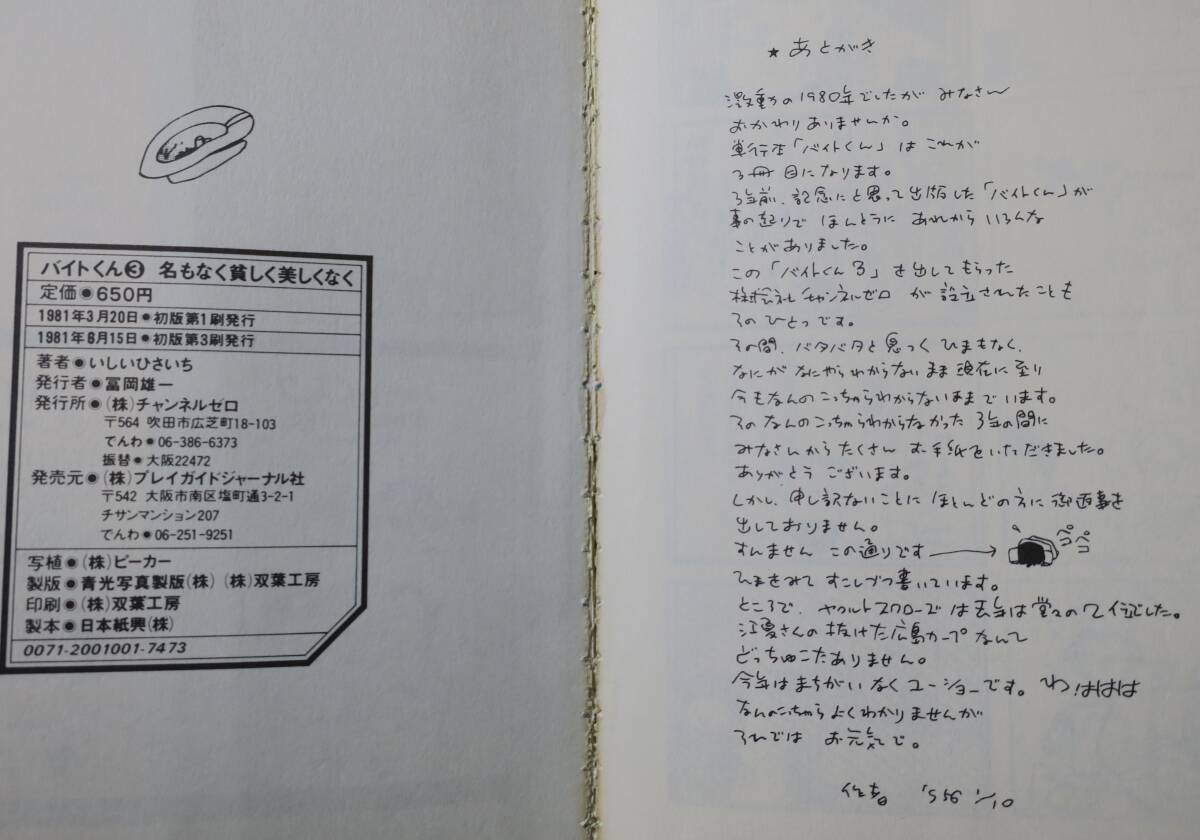 バイトくん❸ 名もなく貧しく美しくなく
定価●650円
1981年3月20日●初版第1刷発行
1981年6月15日●初版第3刷発行
著者●いしいひさいち
発行者●冨岡雄一
発行所●(株)チャンネルゼロ
〒564 吹田市広芝町18-103
でんわ●06-386-6373
振替●大阪22472
発売元●(株)プレイガイドジャーナル社
〒542 大阪市南区塩町通3-2-1
チサンマンション207
でんわ●06-251-9251
写植●(株)ビーカー
製版●青光写真製版(株) (株)双葉工房
印刷●(株)双葉工房
製本●日本紙興(株)
0071-2001001-7473
★あとがき
激動の1980年でしたが みなさん
おかわりありませんか。
単行本「バイトくん」は これが
3冊目になります。
3年前、記念にと思って出版した「バイトくん」が
事の起りで ほんとうに あれから いろんな
ことがありました。
この「バイトくん3」を出してもらった
株式会社チャンネルゼロ が設立されたことも
そのひとつです。
その間、バタバタと思っく ひまもなく、
なにが なにやらわからないまま 現在に至り
今もなんのこっちゃらわからないままでいます。
そのなんのこっちゃらわからなかった 3年の間に
みなさんから たくさん お手紙をいただきました。
ありがとう ございます。
しかし、申し訳ないことに ほとんどの方に 御返事を
出しておりません。
すんません この通りです→
ペコペコ
ひまをみて すこしづつ書いています。
ところで、ヤクルトスワローズは去年は堂々の2位でした。
江夏さんの抜けた広島カープなんて
どっちゅこたありません。
今年はまちがいなくユーショーです。わ、ははは
なんのこっちゃら よくわかりませんが
それでは お元気で。
作者 'S56 1/10